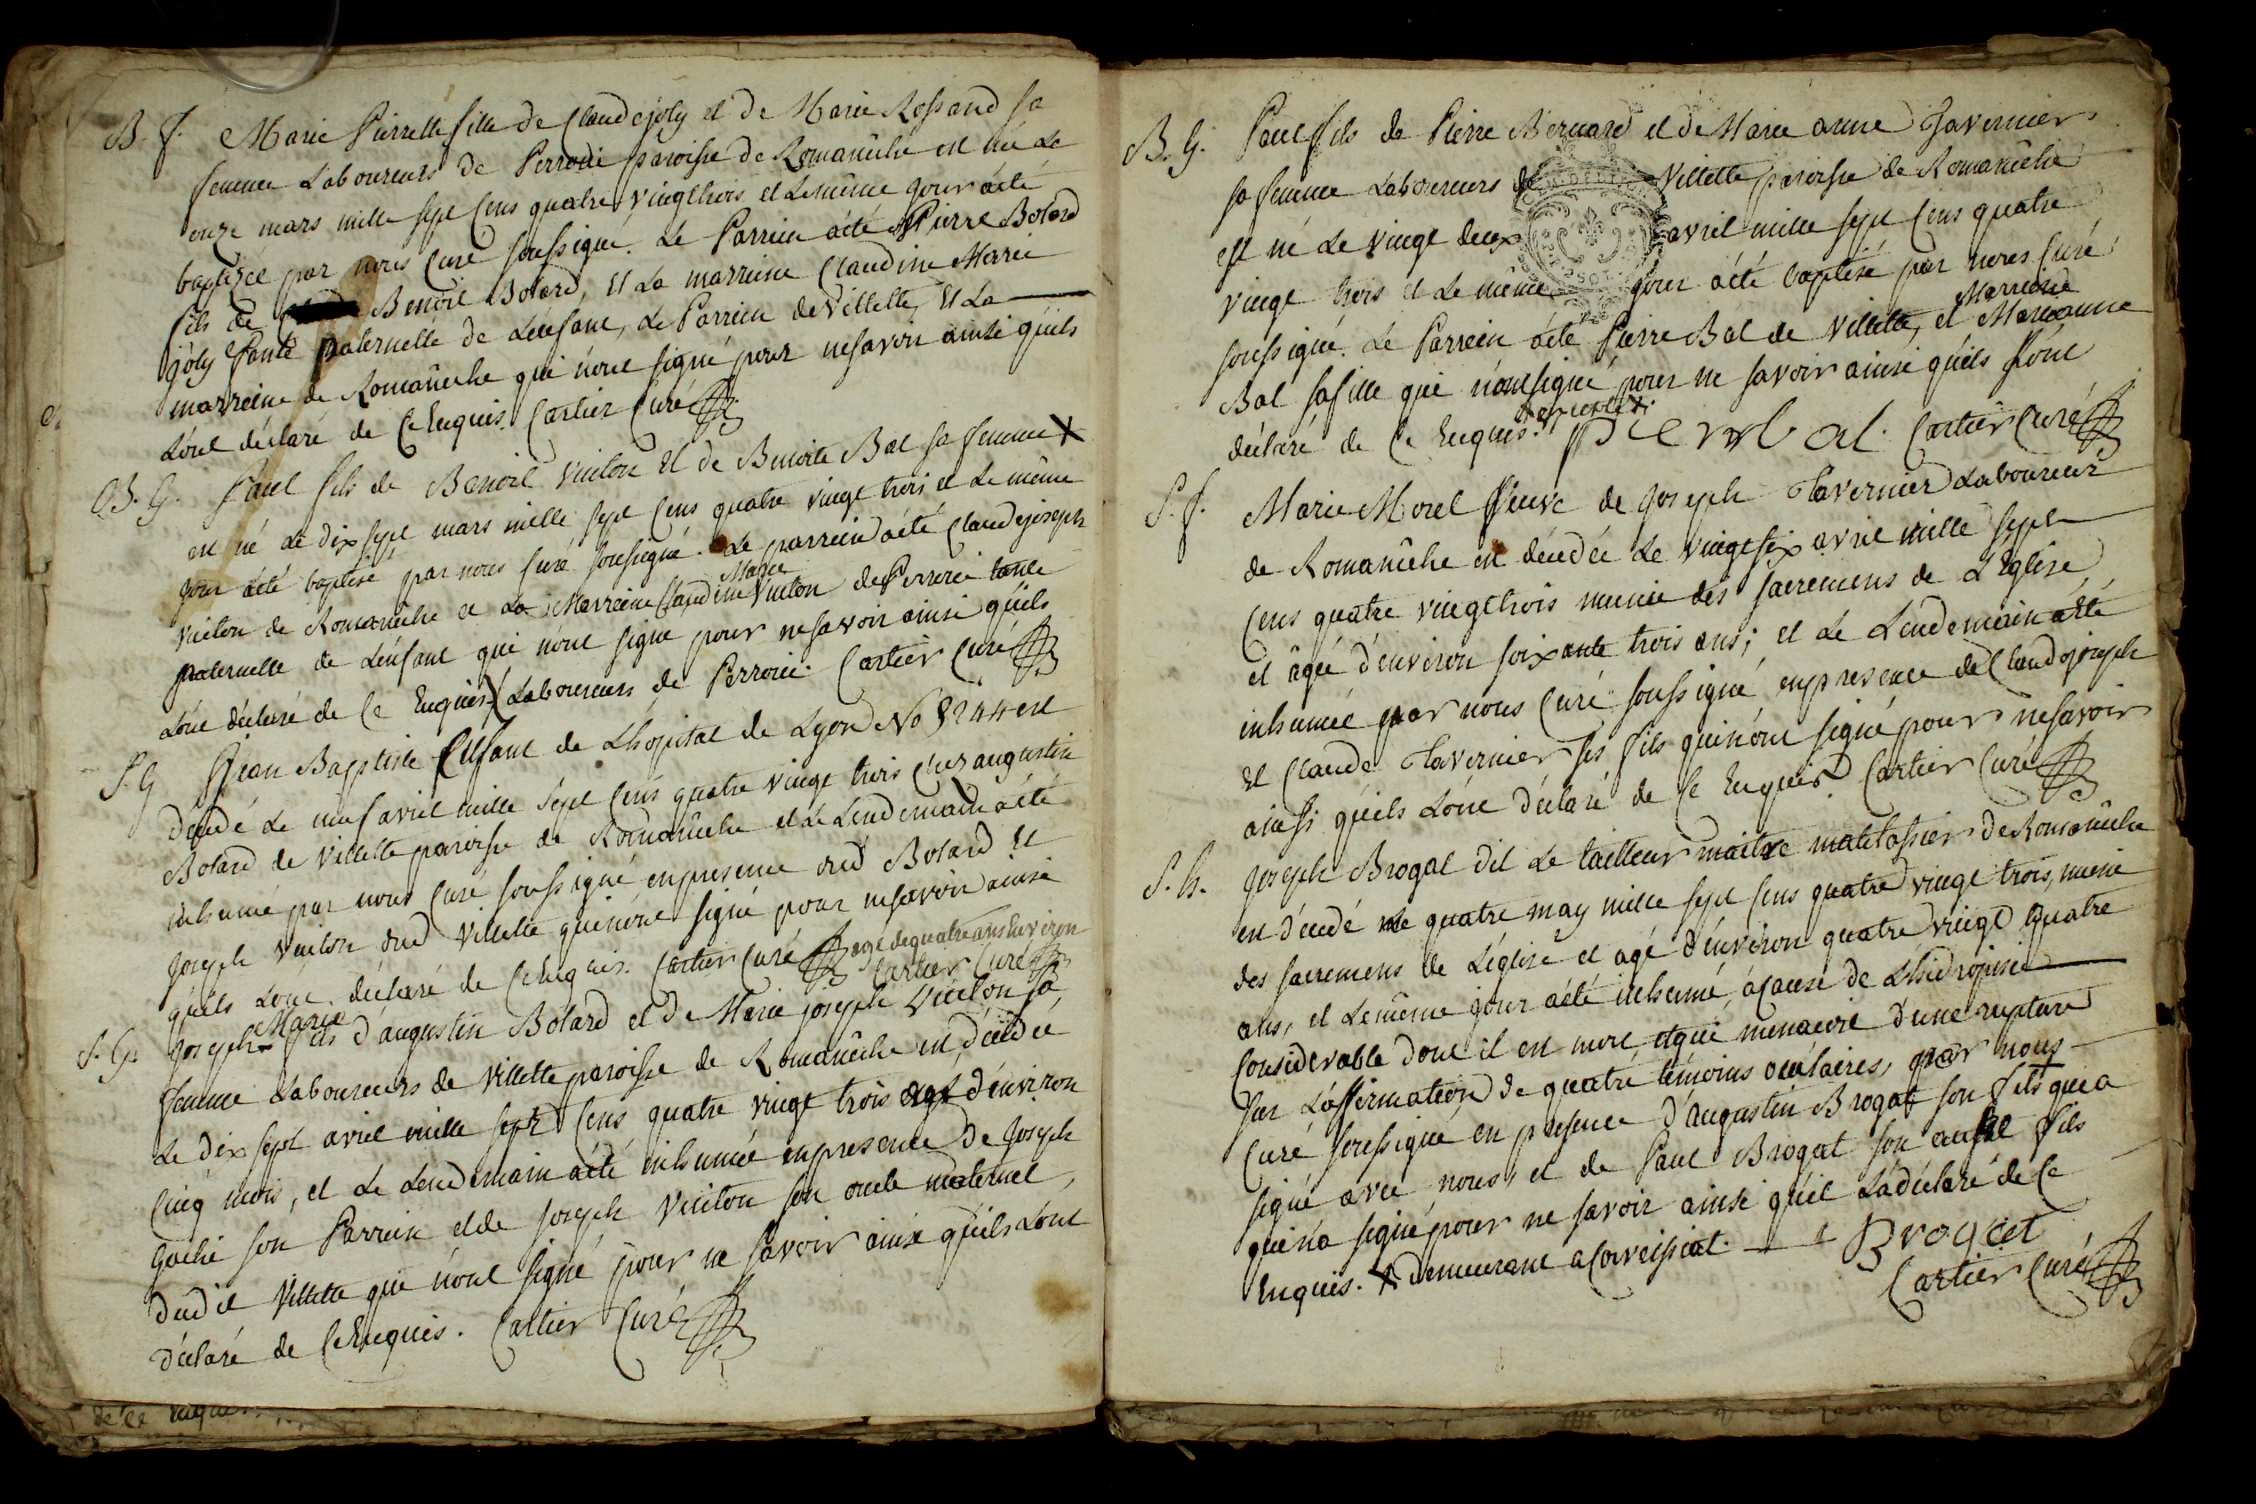 B. f. Marie Pierrette fille de Claude joly et de Marie Rossand sa
femme Laboureurs de Perroüi paroisse de Romanêche est née Le
onze mars mille sept Cens quatre vingt trois et Le même jour a été
baptisée par nous Curé soussigné. Le Parrein a été Pierre Botard
fils de Benoit Botard, et La marreine Claudine Marie
joly Tante paternelle de L'enfant, Le Parrein de Villette, et La
marreine de Romanêche qui n'ont signé pour ne savoir ainsi qu'ils
L'ont déclaré de Ce Enquis. Cartier Curé
B. G. Paul fils de Benoit Vuiton et de Benoite Bal sa femme X
est né Le dix sept mars mille sept Cens quatre vingt trois et Le même
jour a été baptisé par nous Curé soussigné. Le parrein a été Claude joseph
Marie
Vuiton de Romanêche et La Marreine Claudine Vuiton de Perroüi tante
paternelle de L'enfant qui n'ont signé pour ne savoir ainsi qu'ils
L'ont déclaré de Ce Enquis X Laboureurs de Perroüi. Cartier Curé
S. G Jean Baptiste Enfant de L'hopital de Lyon No 8244 est
décédé Le neuf avril mille sept Cens quatre vingt trois Chez augustin
Botard de Villette paroisse de Romanêche et Le Lendemain a été
inhumé par nous Curé soussigné en presence dud Botard et
joseph Vuiton dud Villette qui n'ont signé pour ne savoir ainsi
qu'ils L'ont déclaré de Ce Enquis. Cartier Curé agé de quatre ans Environ
Cartier Curé
Marie
S. G. joseph fils d'augustin Botard et de Marie joseph Vuiton sa
femme Laboureurs de Villette paroisse de Romanêche est décédée
Le dix sept avril mille sept Cens quatre vingt trois agé d'environ
Cinq mois, et Le Lendemain a été inhumée en presence de joseph
Gachi son Parrein et de joseph Vuiton son oncle maternel,
dudit Villette qui n'ont signé pour ne savoir ainsi qu'ils L'ont
déclaré de Ce Enquis. Cartier Curé
B. G. Paul fils de Pierre Bernard et de Marie anne Tavernier
sa femme Laboureurs de Villette paroisse de Romanêche
est né Le vingt deux avril mille sept Cens quatre
vingt trois et Le même jour a été baptisé par nous Curé
Marreine
soussigné. Le Parrein a été Pierre Bal de Villette, et Marianne
Bal sa fille qui n'ont signé pour ne savoir ainsi qu'ils L'ont
déclaré de Ce Enquis. pierre bal. Cartier Curé
S. f. Marie Morel Veuve de joseph Tavernier Laboureur
de Romanêche est décédée Le vingt six avril mille sept
Cens quatre vingt trois munie des sacremens de L'Eglise,
et âgé d'environ soixante trois ans; et Le Lendemain a été
inhumée par nous Curé soussigné en presence de Claude joseph
et Claude Tavernier ses fils qui n'ont signé pour ne savoir
ainsi qu'ils L'ont déclaré de Ce Enquis. Cartier Curé
S. h. joseph Brogat dit Le tailleur maitre matelassier de Romanêche
est décédé Le quatre may mille sept Cens quatre vingt trois, muni
des sacremens de L'église et agé d'environ quatre vingt quatre
ans, et Le même jour a été inhumé, à Cause de L'hidropisie
Considerable dont il est mort, et qui menacoit d'une rupture
sur L'affirmation de quatre témoins oculaires, par nous
Curé soussigné en presence d'augustin Brogat son fils qui a
signé avec nous, et de Paul Brogat son aussi fils
qui n'a signé pour ne savoir ainsi qu'il L'a déclaré de Ce
Enquis. X demeurant a Corveissiat. Brogat
Cartier Curé